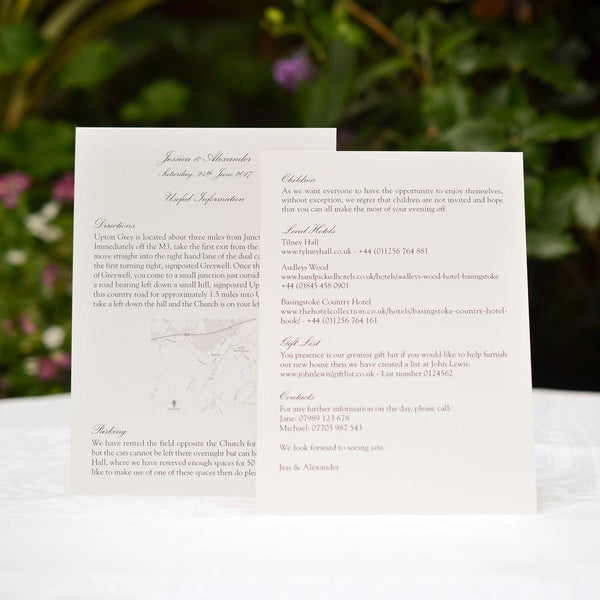 Jessica & Alexander
Saturday, 24th June 2017
Useful Information
Directions
Upton Grey is located about three miles from
Immediately off the M3, take the first exit from the
move straight into the right hand lane of the dual
the first turning right, signposted Greywell. Once
of Greywell, you come to a small junction just
a road bearing left down a small hill, signposted
this country road for approximately 1.5 miles into
take a left down the hill and the Church is on your
Parking
We have rented the field opposite the Church for
but the cars cannot be left there overnight but can
Hall, where we have reserved enough spaces for 50
like to make use of one of these spaces then do
Children
As we want everyone to have the opportunity to enjoy themselves,
without exception, we regret that children are not invited and hope
that you can all make the most of your evening off.
Local Hotels
Tilney Hall
www.tylneyhall.co.uk - +44 (0)1256 764 881
Audleys Wood
www.handpickedhotels.co.uk/hotels/audleys-wood-hotel-basingstoke
+44 (0)845 458 0901
Basingstoke Country Hotel
www.thehotelcollection.co.uk/hotels/basingstoke-country-hotel-
hook/ - +44 (0)1256 764 161
Gift List
You presence is our greatest gift but if you would like to help furnish
our new house then we have created a list at John Lewis:
www.johnlewis/giftlist.co.uk - List number 0124562
Contacts
For any further information on the day, please call:
Jane: 07989 123 678
Michael: 07705 987 543
We look forward to seeing you.
Jess & Alexander